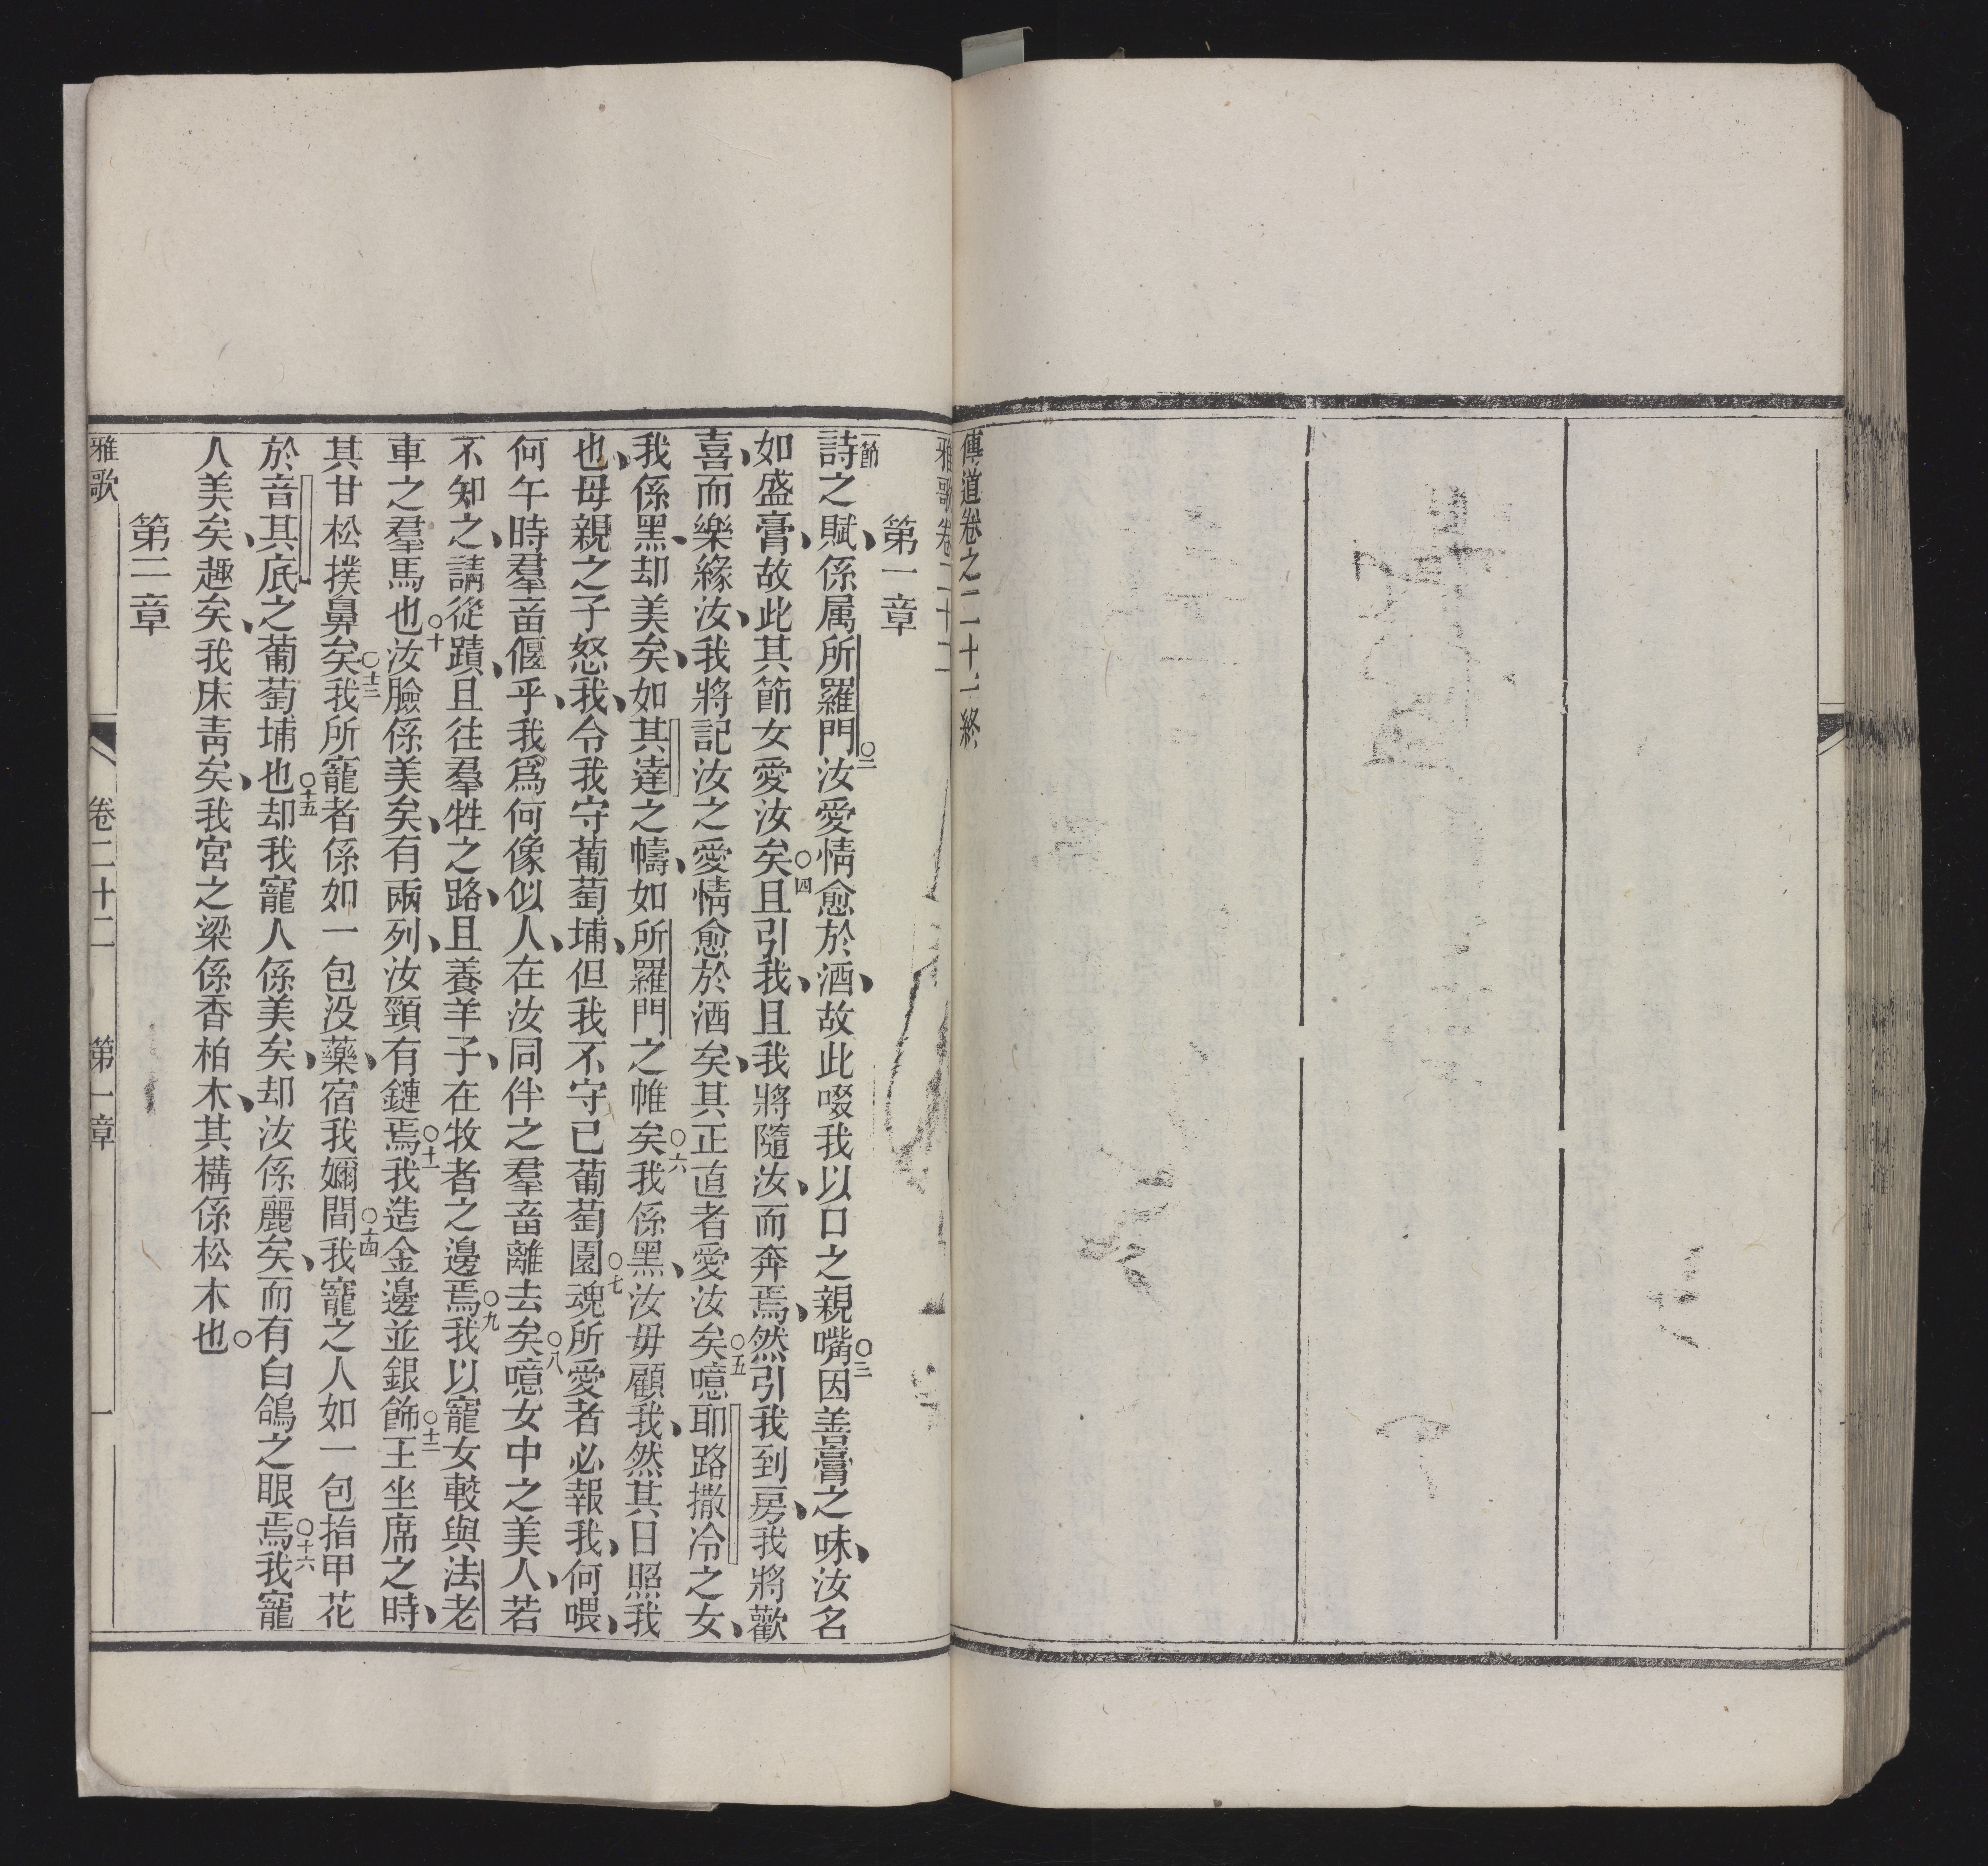 傳道卷之二十一終
雅歌卷二十二
第一章
一節詩之賦、係属所羅門○二汝愛情愈於酒、故此啜我以口之親嘴○三因善膏之味、汝名
如盛膏、故此其節女愛汝矣○四且引我、且我將隨汝、而奔焉、然引我到房、我將歡
喜、而樂緣汝、我將記汝之愛情愈於酒矣、其正直者愛汝矣○五噫耶路撒冷之女、
我係黑、却美矣、如其達之幬、如所羅門之帷矣○六我係黑、汝毋顧我、然其日照我
也、母親之子怒我、令我守葡萄埔、但我不守已葡萄園○七魂所愛者必報我、何喂、
何午時羣畜偃乎、我爲何像似人、在汝同伴之羣畜離去矣○八噫女中之美人、若
不知之、請從蹟、且往羣牲之路、且養羊子、在牧者之邊焉○九我以寵女較與法老
車之羣馬也○十汝臉係美矣、有兩列、汝頸有鏈焉○十一我造金邊並銀飾○十二王坐席之時、
其甘松撲鼻矣○十三我所寵者係如一包没藥、宿我嬭間○十四我寵之人如一包指甲花
於音其底之葡萄埔也○十五却我寵人係美矣、却汝係麗矣、而有白鴿之眼焉○十六我寵
人美矣、趣矣、我床靑矣、我宮之梁係香柏木、其構係松木也○
第二章
雅歌 卷二十二 第一章 一